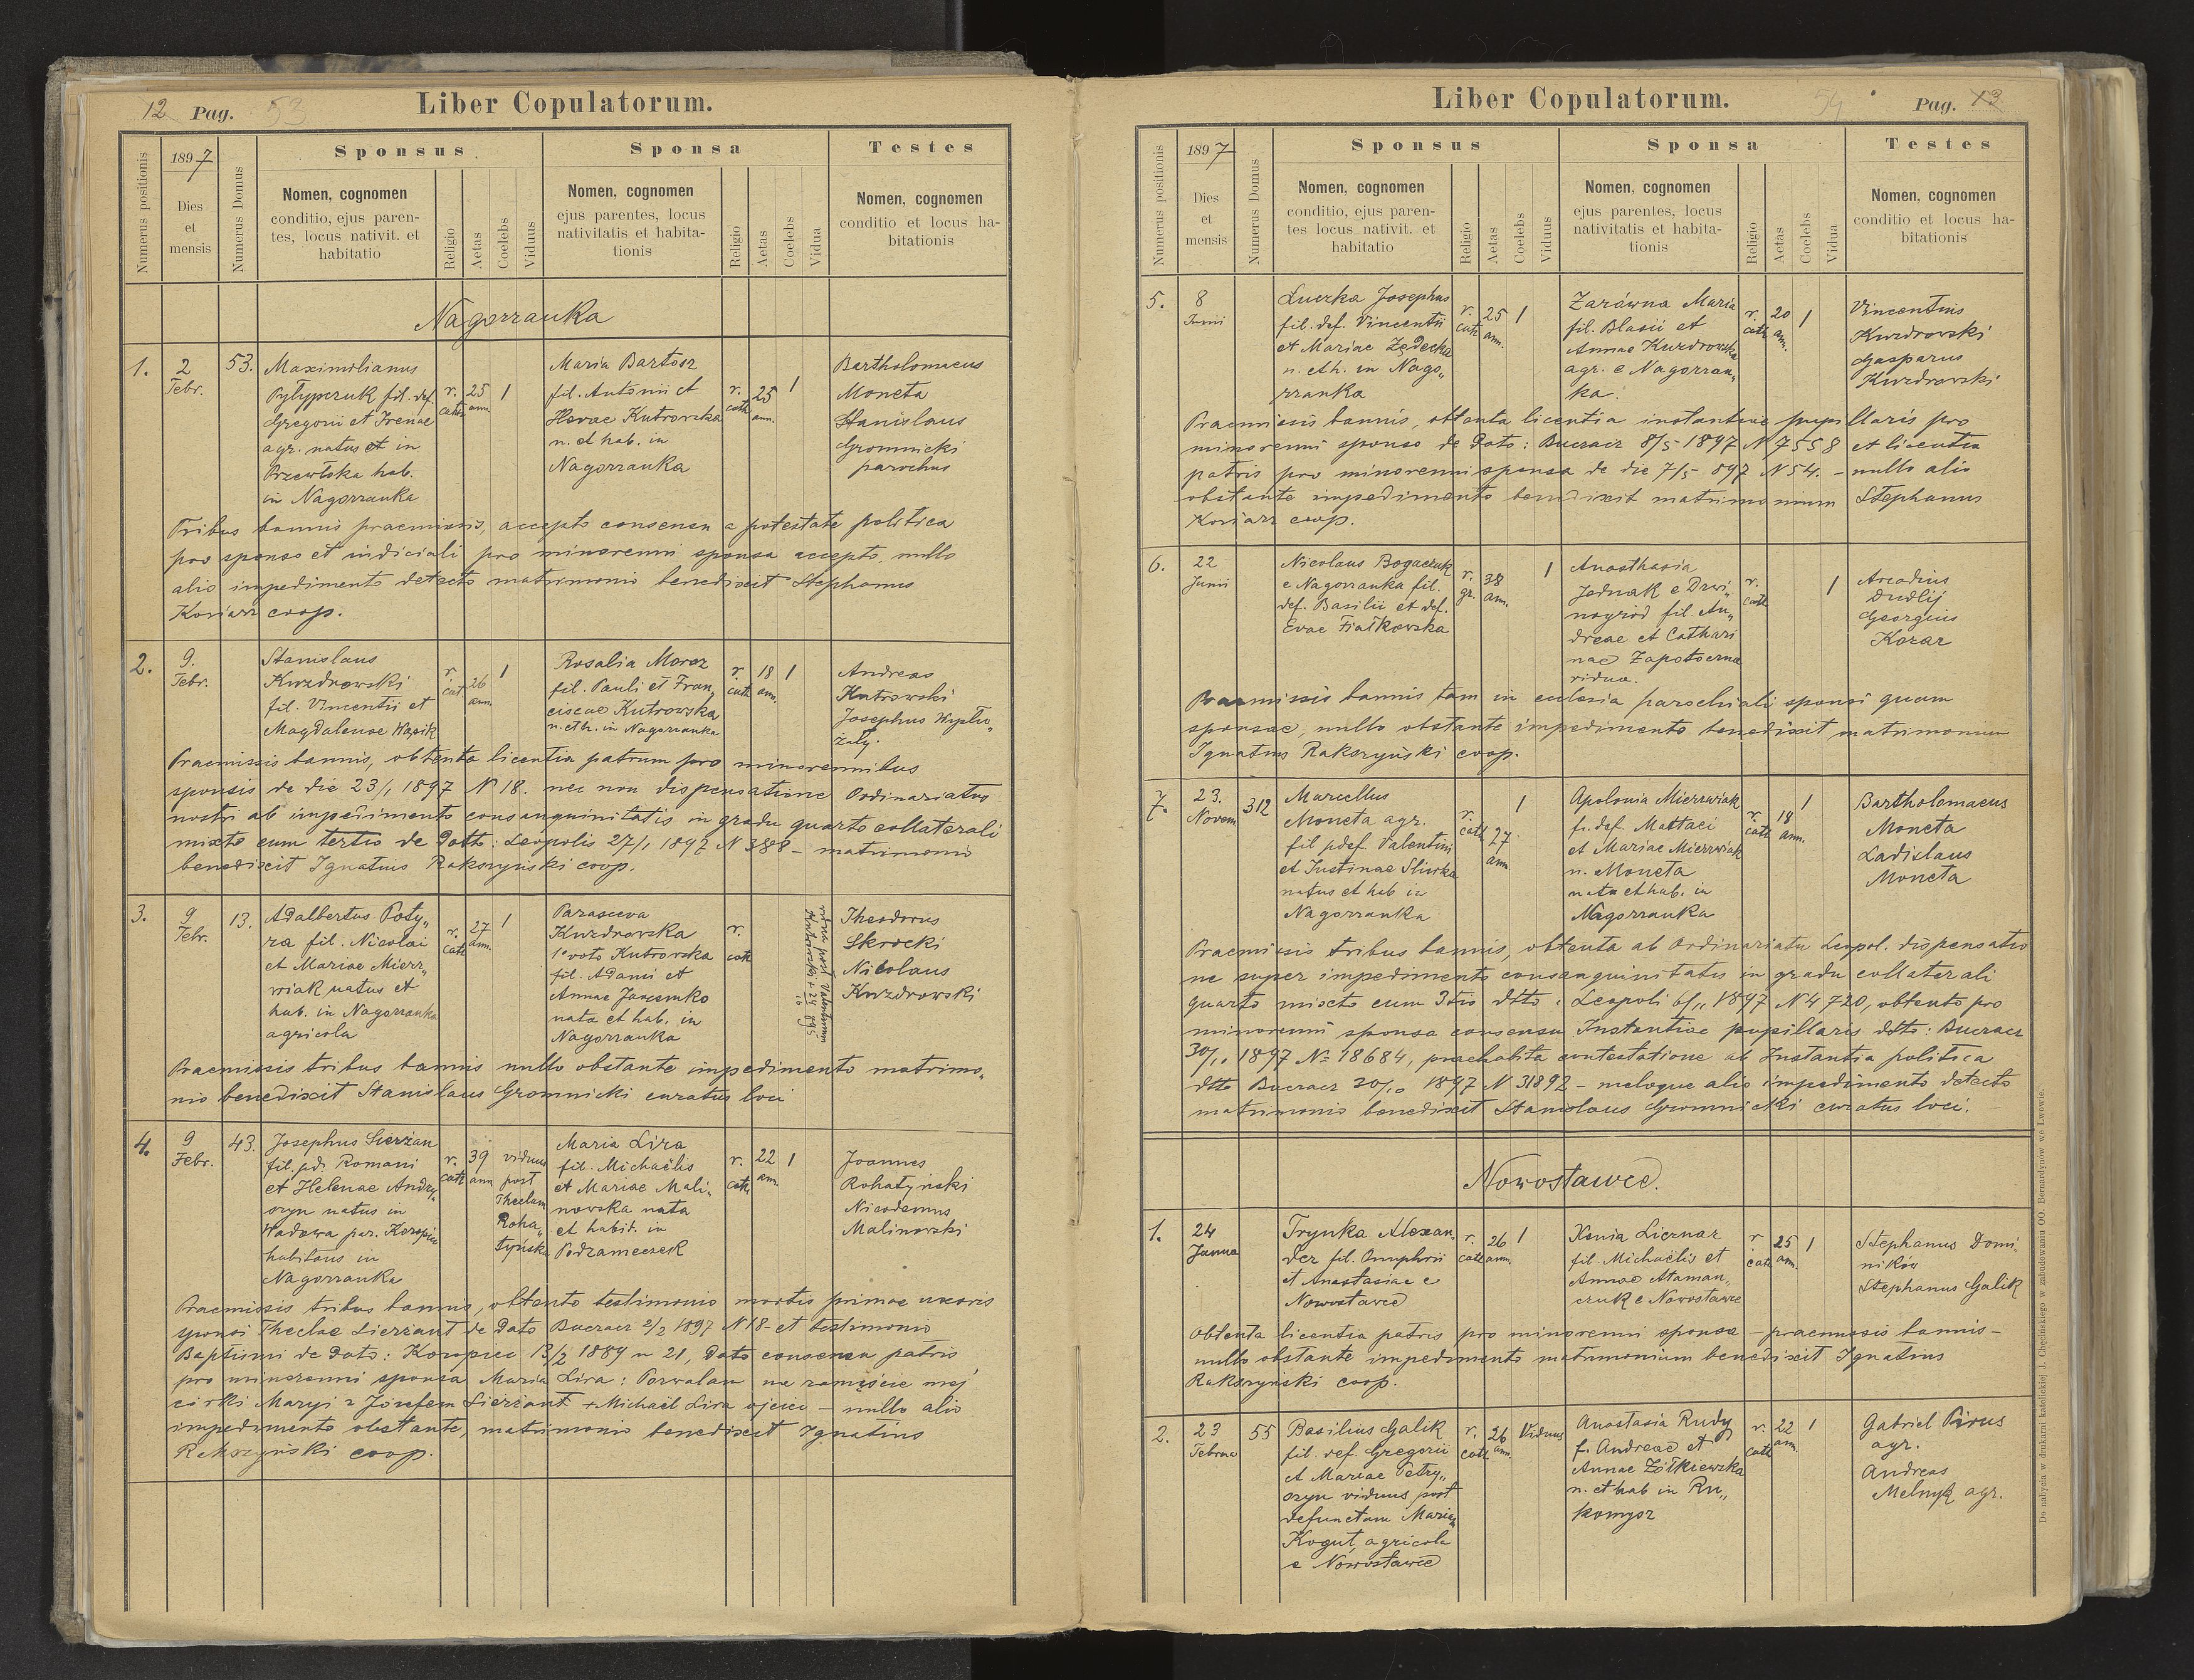 12 Pag. 53
Liber Copulatorum.
Numerus positionis
1897
Dies
et
mensis
Numerus Domus
Sponsus
Nomen, cognomen
conditio, ejus paren-
tes, locus nativit. et
habitatio
Religio
Aetas
Coelebs
Viduus
Sponsa
Nomen, cognomen
ejus parentes, locus
nativitatis et habita-
tionis
Religio
Aetas
Coelebs
Vidua
Testes
Nomen, cognomen
conditio et locus ha-
bitationis
Nagorzanka
1.
2
Febr.
53.
Maximilianus
Pylypczuk fil. def.
Gregorii et Irenae
agr. natus et in
Przewłoka hab.
in Nagorzanka
r.
cath.
25
ann.
1
Maria Bartosz
fil. Antonii et
Hevae Kutrowska
n. et hab. in
Nagorzanka
r.
cath.
25
ann.
1
Bartholomaeus
Moneta
Stanislaus
Gromnicki
parochus
Tribus bannis praemissis, accepto consensu a potestate politica
pro sponso et indiciali pro minorenni sponsa accepto, nullo
alio impedimento detecto matrimonio benedixit Stephanus
Koziarz coop.
2.
9.
Febr.
Stanislaus
Kuzdrowski
fil. Vincentii et
Magdalenae Wąsik
r.
cat.
26
ann.
1
Rosalia Moroz
fil. Pauli et Fran„
ciscae Kutrowska
n. et h. in Nagorzanka
r.
cath.
18
ann.
1
Andreas
Kutrowski
Josephus
Praemissis bannis, obtenta licentia patrum pro minorennibus
sponsis de die 23/1 1897 N 18. nec non dispensatione Ordinariatus
nostri ab impedimento consanguinitatis in gradu quarto collaterali
mixto cum tertio de Datto: Leopolis 27/1 1897 N 388 – matrimonio
benedixit Ignatius Rakszyński coop.
3.
9
Febr.
13.
Adalbertus Poty„
ra fil. Nicolai
et Mariae Mierz„
wiak natus et
hab. in Nagorzanka
agricola
r.
cath
27
ann.
1
Parasceva
Kuzdrowska
1° voto Kutrowska
fil. Adami et
Annae Jaremko
nata et hab. in
Nagorzanka
r.
cath
vidua post Valentinum
Kutrowski + 24/10 895
Theodorus
Skrocki
Nicolaus
Kuzdrowski
Praemissis tribus bannis nullo obstante impedimento matrimo„
nio benedixit Stanislaus Gromnicki curatus loci
4.
9
Febr.
43.
Josephus Sierżan
fil. pd. Romani
et Helenae Andry„
szyn natus in
Wadowa par. Koropiec
habitans in
Nagorzanka
r.
cath
39
ann
viduus
post
Theclam
Roha„
tyńska
Maria Lira
fil. Michaëlis
et Mariae Mali„
nowska nata
et habit. in
Podzameczek
r.
cath.
22
am.
1
Joannes
Rohatynski
Nicodemus
Malinowski
Praemissis tribus bannis, obtento testimonio mortis primae uxoris
sponsi Theclae Sierżant de Dato Buczacz 2/2 1897 N 18 – et testimonio
Baptismi de Dato: Koropiec 13/2 1889 n 21, Dato consensu patris
pro minorenni sponsa Maria Lira: Pozwalam na zamęście mej
córki Maryi z Józefem Sierżant + Michaël Lira ojciec – nullo alio
impedimento obstante, matrimonio benedixit Ignatius
Rakszyński coop.
Liber Copulatorum.
54 Pag. 13
Numerus positionis
1897
Dies
et
mensis
Numerus Domus
Sponsus
Nomen, cognomen
conditio, ejus paren-
tes locus nativit. et
habitatio
Religio
Aetas
Coelebs
Viduus
Sponsa
Nomen, cognomen
ejus parentes, locus
nativitatis et habita-
tionis
Religio
Aetas
Coelebs
Vidua
Testes
Nomen, cognomen
conditio et locus ha-
bitationis
5.
8
Junii
Luczka Josephus
fil. def. Vincentii
et Mariae Zędecka
n. et h. in Nago„
rzanka
r.
cath
25
ann.
1
Zarówna Maria
fil. Blasii et
Annae Kuzdrowska
agr. e Nagorzan„
ka.
r.
cath
20
an.
1
Vincentius
Kuzdrowski
Gasparus
Kuzdrowski
Praemissis bannis, obtenta licentia instantiae pupillaris pro
minorenni sponso de Dato: Buczacz 8/5 1897 N 7558 et licentia
patris pro minorenni sponsa de die 7/5 897 N 54. – nullo alio
obstante impedimento benedixit matrimonium Stephanus
Koziarz coop.
6.
22
Junii
Nicolaus Bogaczuk
e Nagorzanka fil.
def. Basilii et def.
Evae Fiałkowska
r.
gr.
38
ann.
1
Anasthasia
Jednak e Dzwi„
nogród fil. An„
dreae et Cathari
nae Zapotoczna
vidua.
r.
cath
1
Arcadius
Dudlij
Georgius
Kozar
Praemissis bannis tam in ecclesia parochiali sponsi quam
sponsae, nullo obstante impedimento benedixit matrimonium
Ignatius Rakszyński coop.
7.
23.
Novem.
312
Marcellus
Moneta agr.
fil pdef. Valentini
et Justinae Sliwka
natus et hab in
Nagorzanka
r.
cath
27
ann
1
Apolonia Mierzwiak
f. def. Mattaei
et Mariae Mierzwiak
n. Moneta
nata et hab. in
Nagorzanka
r.
cath
18
ann.
1
Bartholomaeus
Moneta
Ladislaus
Moneta
Praemissis tribus bannis, obtenta ab Ordinariatu Leopol. dispensatio
ne super impedimento consanguinitatis in gradu collaterali
quarto mixto cum 3tio ddto: Leopoli 6/11 1897 N 4720, obtento pro
minorenni sponsa consensu Instantiae pupillaris ddto: Buczacz
30/10 1897 No 18684, praehabita contestatione ab Instantia politica
dtto Buczacz 20/10 1897 N 31892 – neloque alio impedimento detecto
matrimonio benedixit Stanislaus Gromnicki curatus loci.
Nowostawce.
1.
24
Janua
Trynka Alexan„
der fil. Onuphrii
et Anastasiae e
Nowostawce
r.
cath
26
ann.
1
Xenia Licznar
fil. Michaëlis et
Annae Ataman„
czuk e Nowostawce
r
cath
25
ann.
1
Stephanus Domi„
ników
Stephanus Galik
Obtenta licentia patris pro minorenni sponsa – praemissis bannis –
nullo obstante impedimento matrimonium benedixit Ignatius
Rakszyński coop.
2.
23
Februa
55
Basilius Galik
fil. def. Gregorii
et Mariae Petry„
szyn viduus post
defunctam Mariam
Kogut, agricola
e Nowostawce
r.
cath
26
ann.
Viduus
Anastasia Rudy
f. Andreae et
Annae Żółkiewska
n. et hab in Ru„
komysz
r.
cath
22
ann.
1
Gabriel Pirus
agr.
Andreas
Melnyk agr.
Do nabycia w drukarni katolickiej J. Chęcińskiego w zabudowaniu OO. Bernardynów we Lwowie.